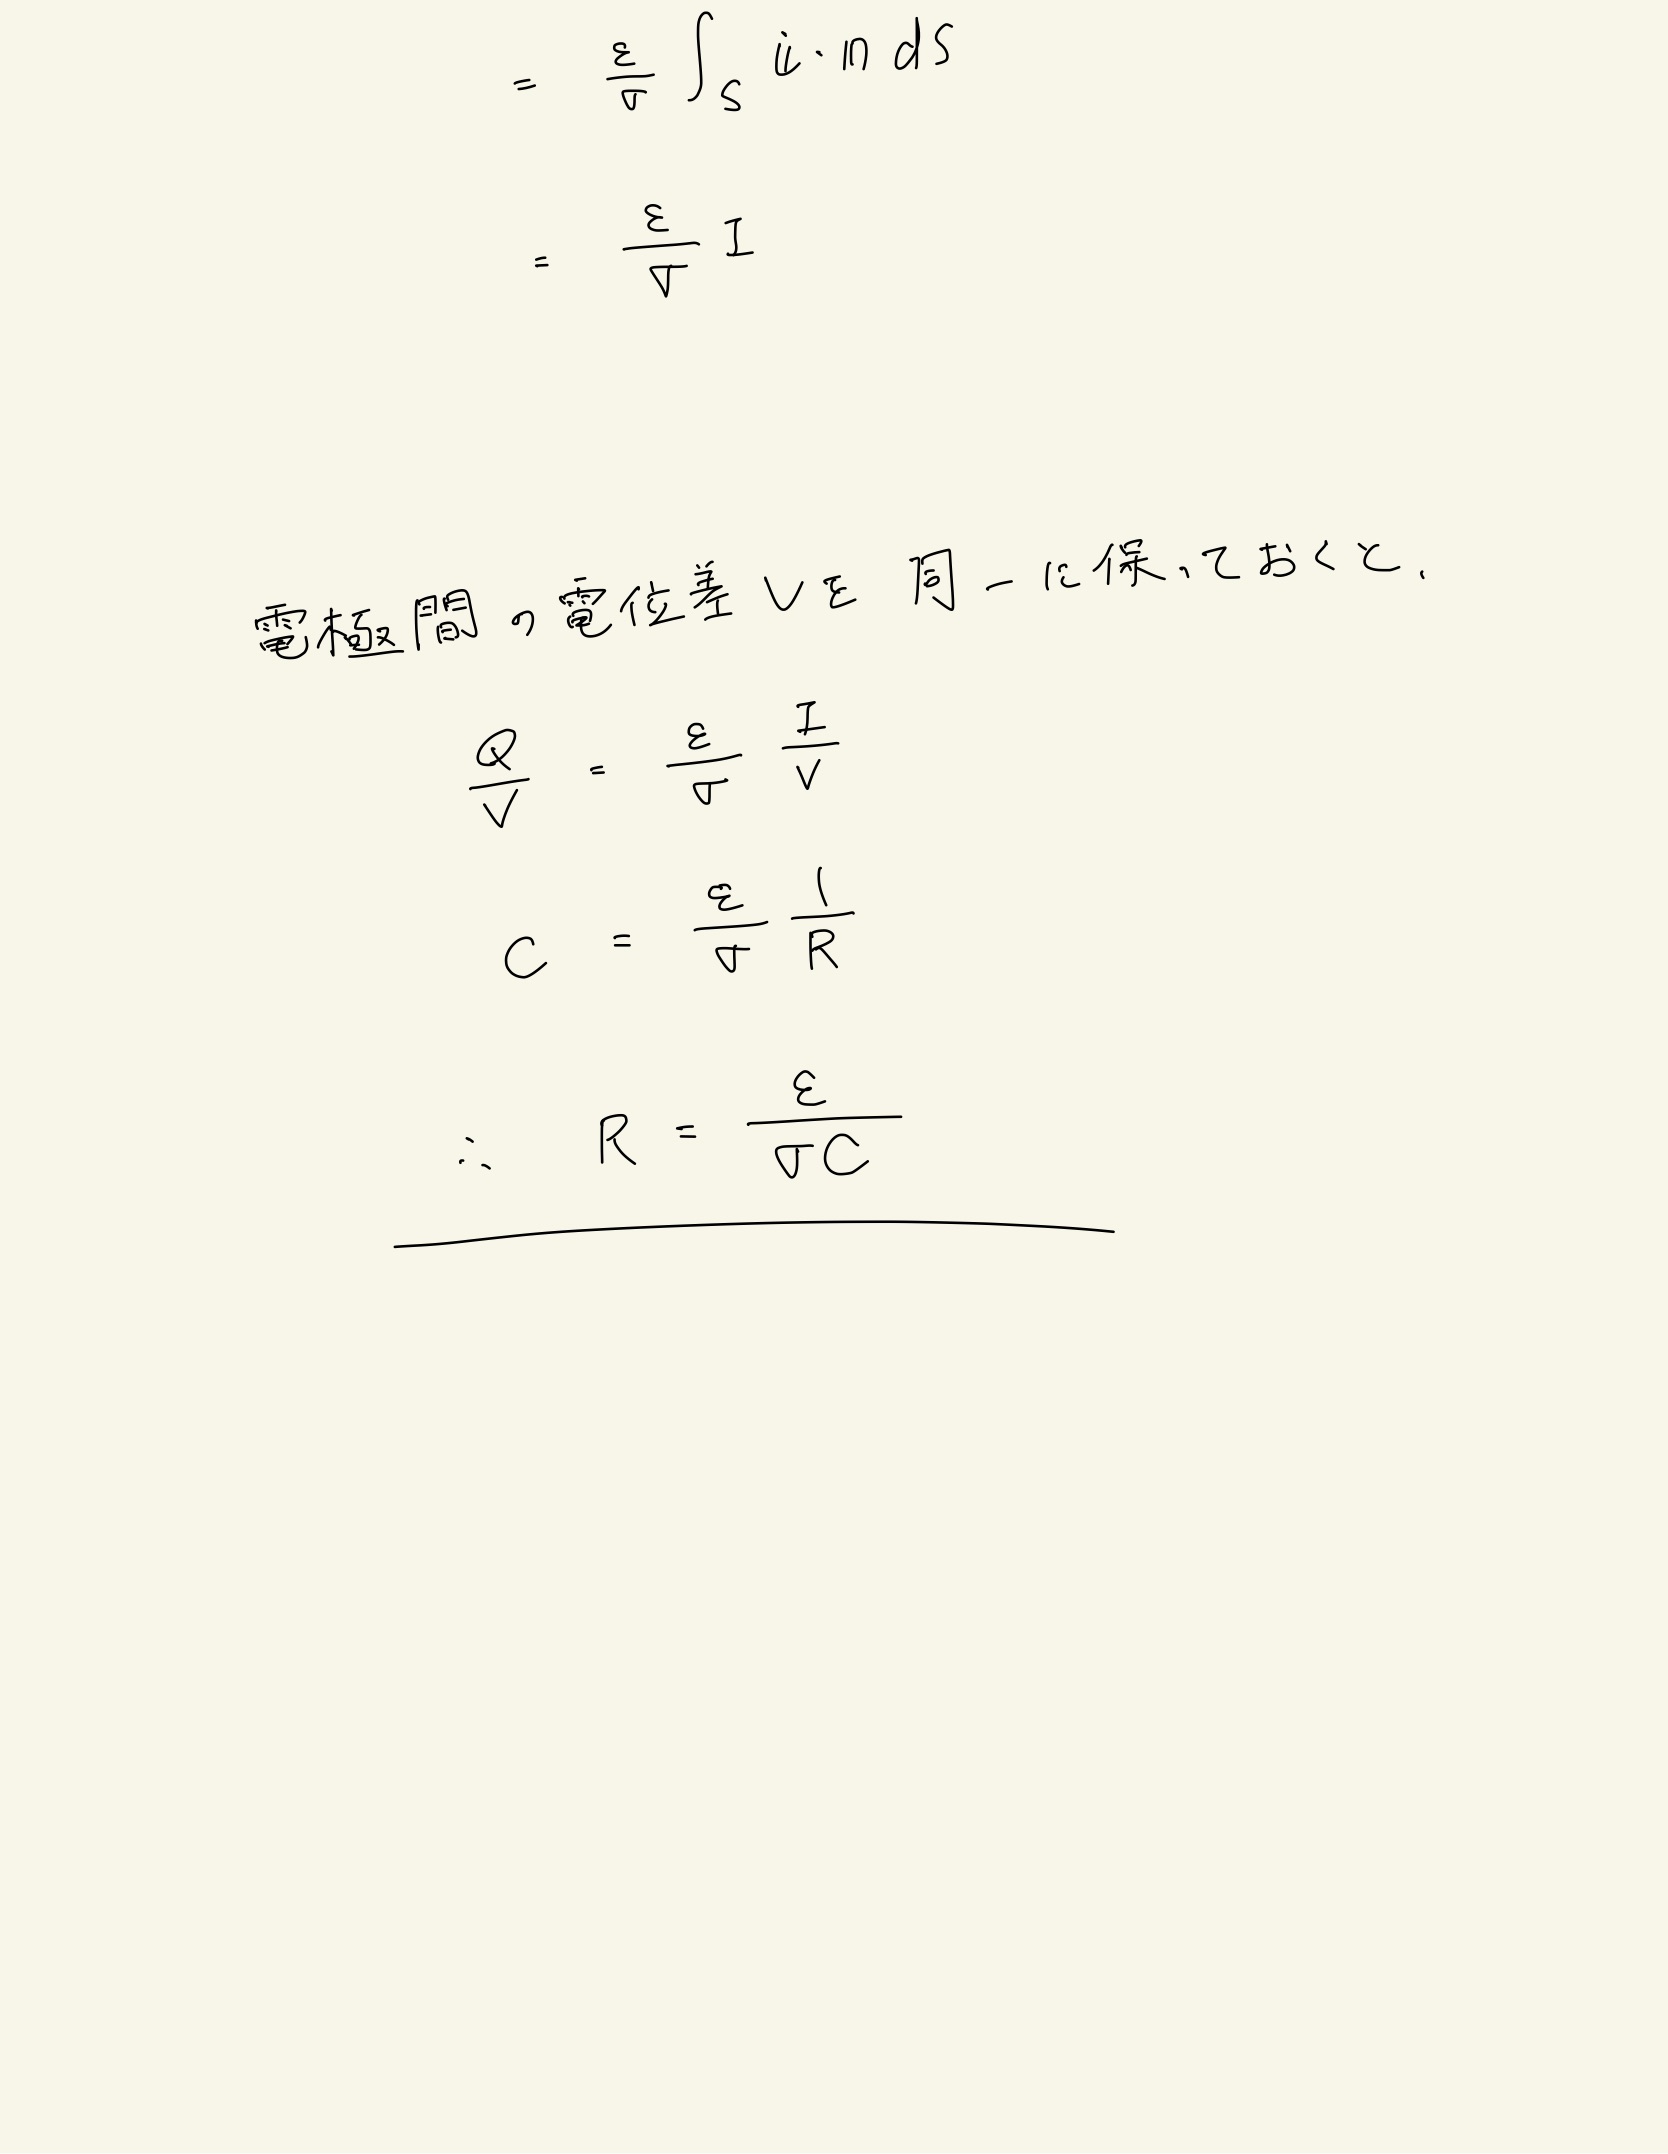 = ε/σ ∫_S i・n dS
= ε/σ I
電極間の電位差Vを同一に保っておくと,
Q/V = ε/σ I/V
C = ε/σ 1/R
∴ R = ε/σC